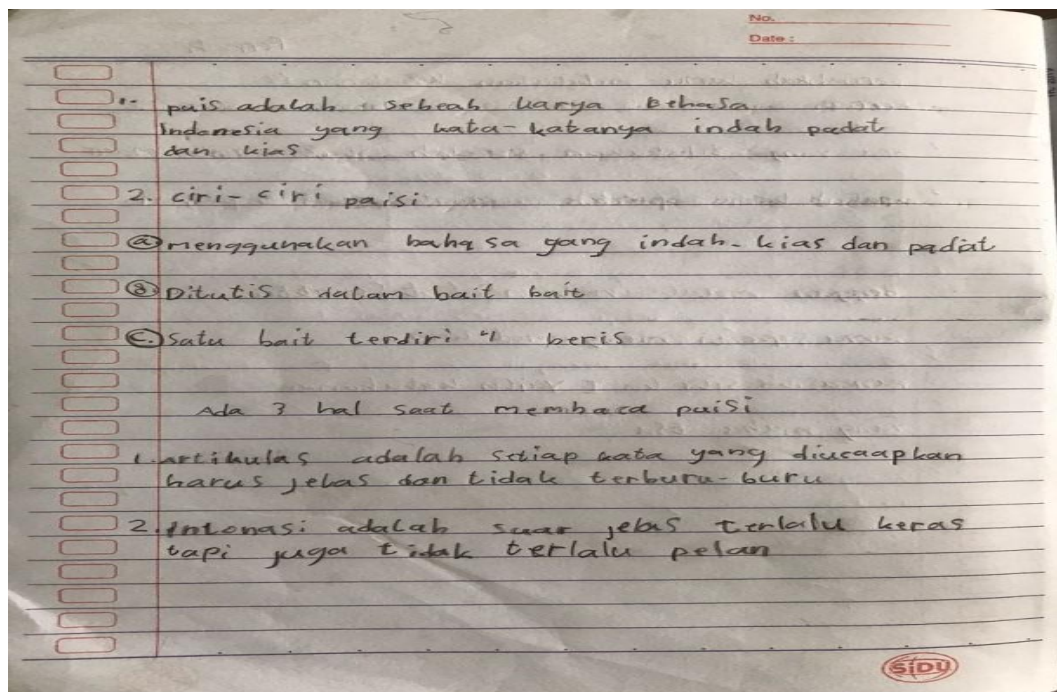 No.
Date :
1. puis adalah sebeah karya behasa
Indonesia yang kata-katanya indah padat
dan kias
2. ciri-ciri paisi
a menggunakan bahasa yang indah-kias dan padat
Ditutis dalam bait bait
c. Satu bait terdiri 4 beris
Ada 3 hal saat membaca puisi
1. artikulas adalah setiap kata yang diucaapkan
harus jelas dan tidak terburu-buru
2. intonasi adalah suar jelas terlalu keras
tapi juga tidak terlalu pelan
SIDU